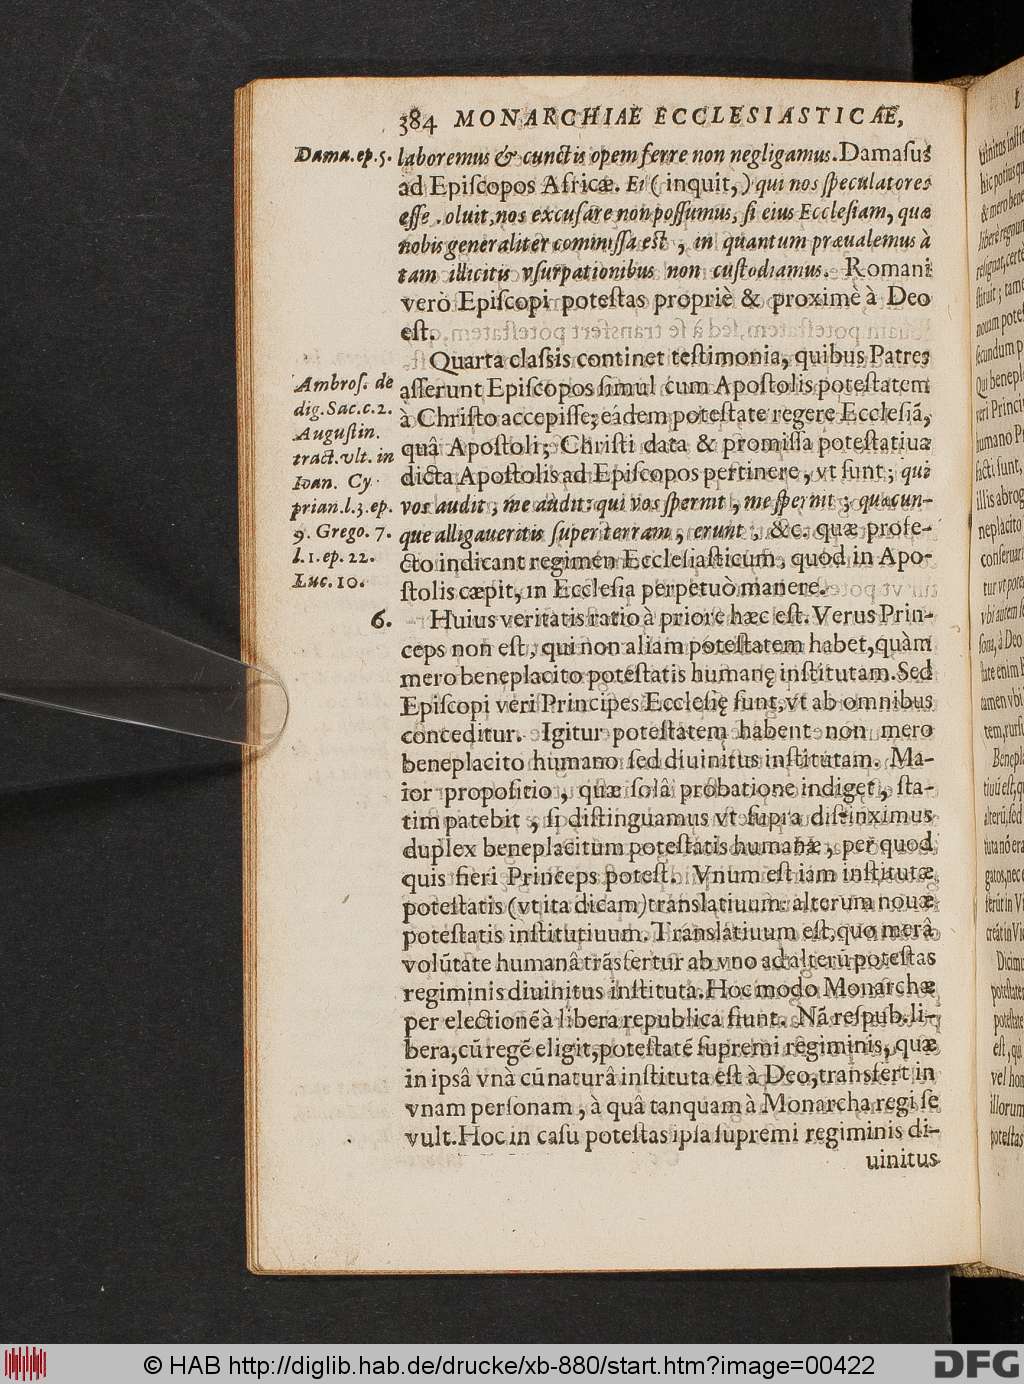 384 MONARCHIAE ECCLESIASTICAE,
Dama.ep.5. laboremus & cunctis opem ferre non negligamus. Damaſus
ad Epiſcopos Africæ. Ei (inquit,) qui nos ſpeculatores
eſſe .oluit, nos excuſare non poſſumus, ſi eius Eccleſiam, quæ
nobis generaliter commiſſa eſt, in quantum præualemus à
tam illicitis vſurpationibus non cuſtodiamus. Romani
verò Epiſcopi poteſtas propriè & proximè à Deo
eſt.
Quarta claſsis continet teſtimonia, quibus Patres
Ambroſ. de
dig. Sac. c. 2.
Auguſtin.
tract. vlt. in
Ioan. Cy
prian. l. 3. ep.
9. Grego. 7.
l. 1. ep. 22.
Luc. 10.
aſſerunt Epiſcopos ſimul cum Apoſtolis poteſtatem
à Chriſto accepiſſe; eádem poteſtate regere Eccleſiã,
quâ Apoſtoli; Chriſti data & promiſſa poteſtatiua
dicta Apoſtolis ad Epiſcopos pertinere, vt ſunt; qui
vos audit, me audit: qui vos ſpernit, me ſpernit; quæcun-
que alligaueritis ſuper terram, erunt, &c. quæ profe-
cto indicant regimen Eccleſiaſticum, quod in Apo-
ſtolis cæpit, in Eccleſia perpetuò manere.
6. Huius veritatis ratio à priore hæc eſt. Verus Prin-
ceps non eſt, qui non aliam poteſtatem habet, quàm
mero beneplacito poteſtatis humanę inſtitutam. Sed
Epiſcopi veri Principes Eccleſię ſunt, vt ab omnibus
conceditur. Igitur poteſtatem habent non mero
beneplacito humano ſed diuinitus inſtitutam. Ma-
ior propoſitio, quæ ſolâ probatione indiget, ſta-
tim patebit, ſi diſtinguamus vt ſupra diſtinximus
duplex beneplacitum poteſtatis humanæ, per quod
quis fieri Princeps poteſt. Vnum eſt iam inſtitutæ
poteſtatis (vt ita dicam) translatiuum: alterum nouæ
poteſtatis inſtitutiuum. Translatiuum eſt, quo merâ
volũtate humanâ trãsfertur ab vno ad alterũ poteſtas
regiminis diuinitus inſtituta. Hoc modo Monarchæ
per electionẽ à libera republica fiunt. Nã reſpub. li-
bera, cũ regẽ eligit, poteſtatẽ ſupremi regiminis, quæ
in ipsâ vnà cũ naturâ inſtituta eſt à Deo, transfert in
vnam perſonam, à quâ tanquam à Monarcha regi ſe
vult. Hoc in caſu poteſtas ipſa ſupremi regiminis di-
uinitus
© HAB http://diglib.hab.de/drucke/xb-880/start.htm?image=00422
DFG